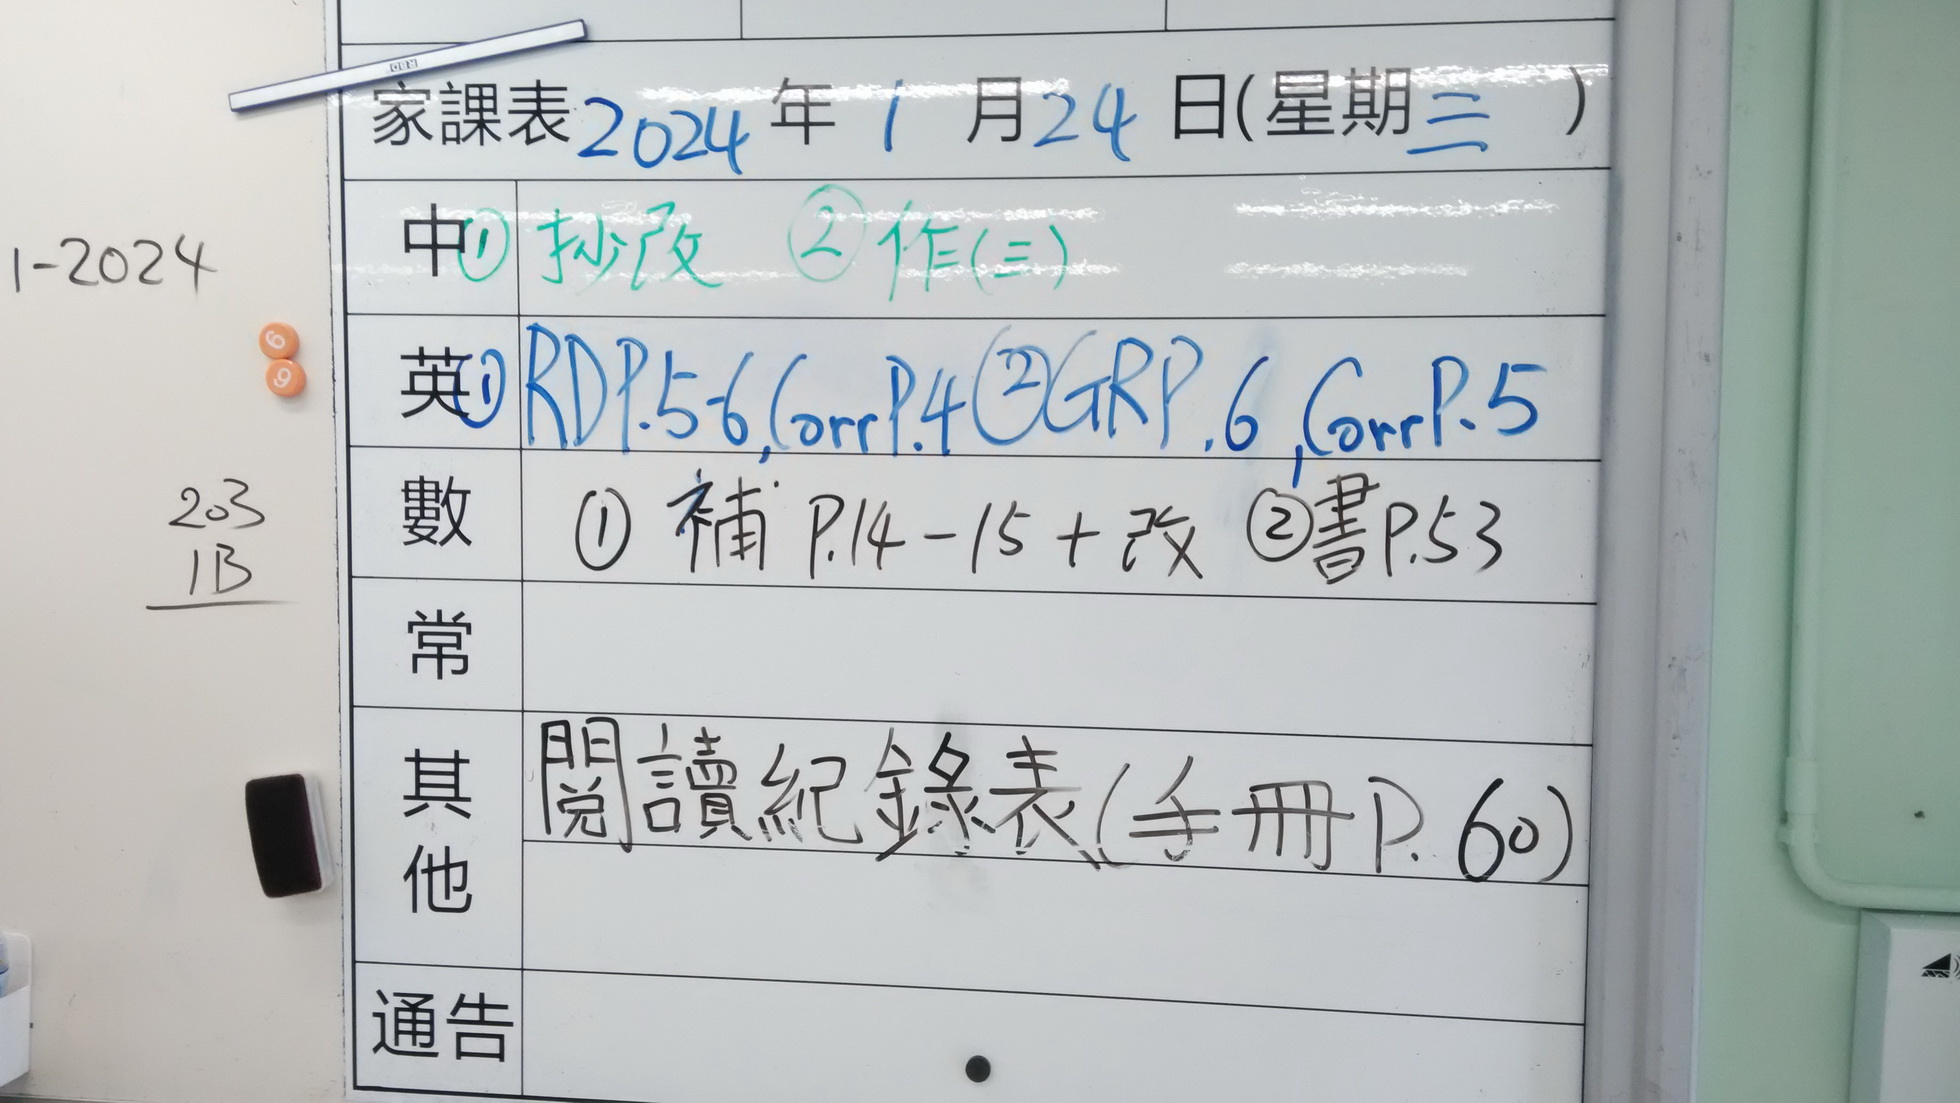 RBD
家課表 2024 年 1 月 24 日(星期三)
1-2024
中 ① 抄改 ② 作(三)
6
9
英 ① RD P.5-6, Corr P.4 ② GR P.6, Corr P.5
203
1B
數 ① 補 P.14-15 + 改 ② 書 P.53
常
其他 閱讀紀錄表(手冊 P.60)
通告